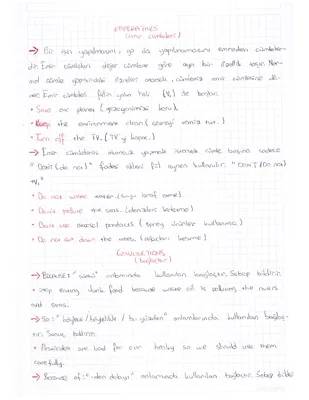 IMPERATIVES
(emir cümleleri)
→ Bir işin yapılmasını, ya da yapılmamasını emreden cümlelerdir. Emir cümleleri diğer cümlelere göre ayrı bir özellik taşır. Nor-
mal cümle
cümlesine de-
nir. Emir cümleleri fiilin yalın hali (V₁) ile başlar.
• Save our planet (gezegenimizi koru).
• Keep the environment clean (çevreyi temiz tut.)
• Turn off the TV. (TV'yi kapat.)
→ Emir cümlelerini olumsuz yapmak istersek cümle başına sadece
"Don't (do not)" ifadesi fiil aynen kullanılır. "DON'T (Do not)
V₁"
• Do not waste water. (suyu israf etme)
• Don't pollute the seas. (denizleri kirletme)
• Don't use aerosol products (sprey ürünler kullanma.)
• Do not cut down the trees. (ağaçları kesme)
CONJUNCTIONS
(bağlaçlar)
→ BECAUSE: "çünkü" anlamında kullanılan bağlaçtır. Sebep bildirir.
• stop eating junk food because waste oil is polluting the rivers
and seas.
→ So: "böylece / böylelikle / bu yüzden" anlamlarında kullanılan bağlaç-
tır. Sonuç bildirir.
• Pesticides are bad for our so we should use them
carefully.
→ Because of: "-den dolayı" anlamında kullanılan bağlaçtır. Sebep bildir